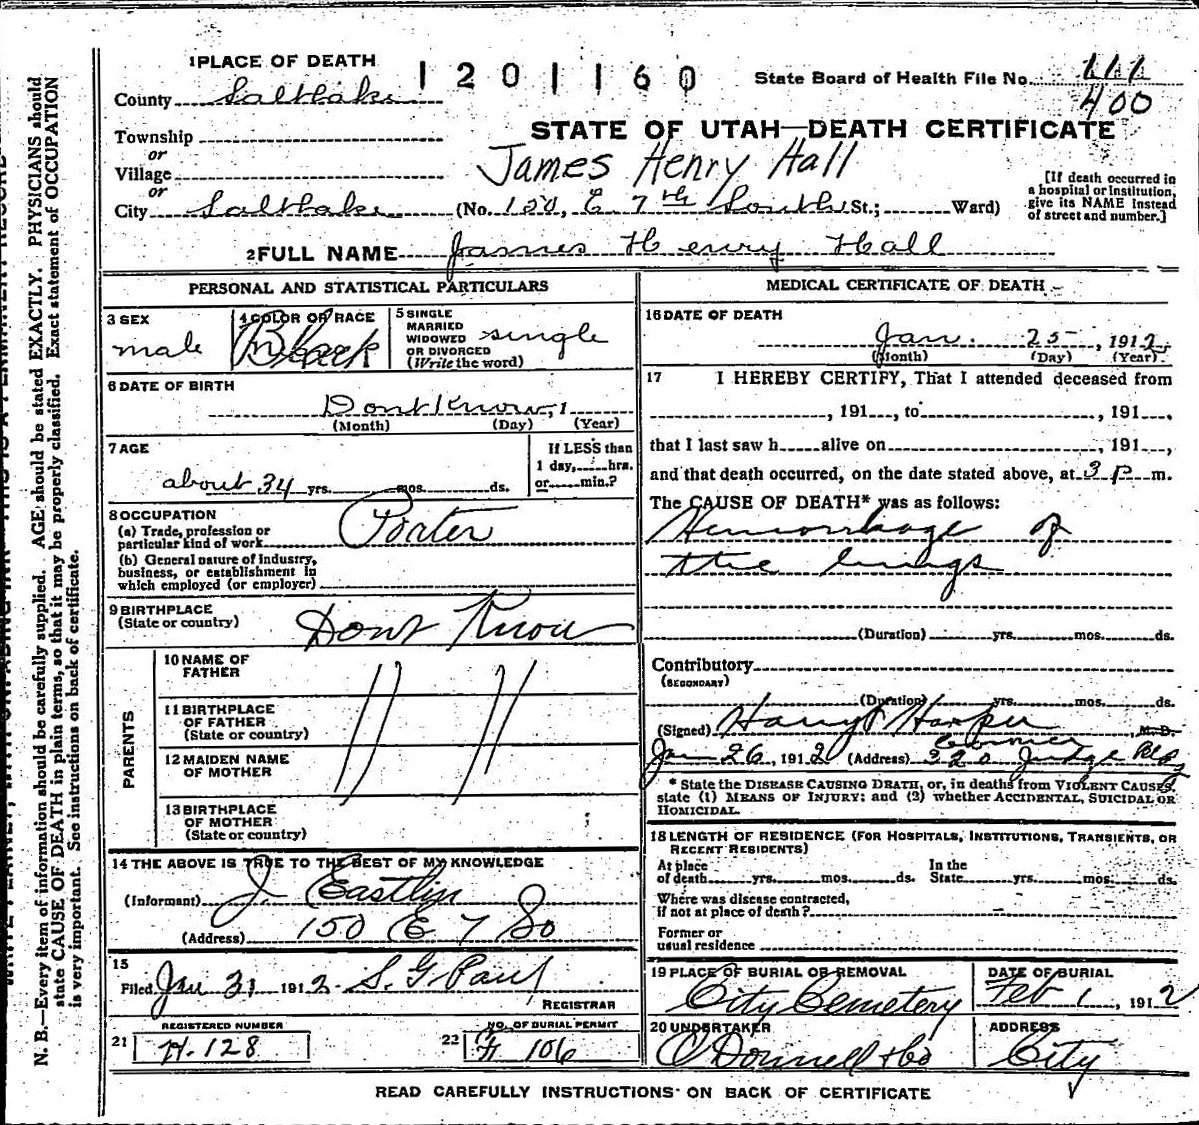 1 PLACE OF DEATH
1201160
State Board of Health File No. 111
400
County Saltlake
STATE OF UTAH—DEATH CERTIFICATE
Township
or
Village
James Henry Hall
or
City Saltlake (No. 150, E. 7th South St.; Ward)
[If death occurred in
a hospital or institution,
give its NAME instead
of street and number.]
2 FULL NAME James Henry Hall
PERSONAL AND STATISTICAL PARTICULARS
3 SEX
male
4 COLOR OR RACE
Black
5 SINGLE
MARRIED
WIDOWED
OR DIVORCED
(Write the word)
single
6 DATE OF BIRTH
Dont Know, 1
(Month) (Day) (Year)
7 AGE
about 34 yrs. mos. ds.
If LESS than
1 day, hrs.
or min.?
8 OCCUPATION
(a) Trade, profession or
particular kind of work
Porter
(b) General nature of industry,
business, or establishment in
which employed (or employer)
9 BIRTHPLACE
(State or country)
Dont Know
PARENTS
10 NAME OF
FATHER
11 BIRTHPLACE
OF FATHER
(State or country)
12 MAIDEN NAME
OF MOTHER
13 BIRTHPLACE
OF MOTHER
(State or country)
" "
14 THE ABOVE IS TRUE TO THE BEST OF MY KNOWLEDGE
(Informant) J. Eastlin
(Address) 150 E 7 So
15
Filed Jan 31 1912 S. G. Paul
REGISTRAR
REGISTERED NUMBER
21 H.128
NO. OF BURIAL PERMIT
22 106
MEDICAL CERTIFICATE OF DEATH
16 DATE OF DEATH
Jan. 25, 1912
(Month) (Day) (Year)
17 I HEREBY CERTIFY, That I attended deceased from
, 191 , to , 191 ,
that I last saw h alive on , 191 ,
and that death occurred, on the date stated above, at 3 P m.
The CAUSE OF DEATH* was as follows:
Hemorrhage of
the lungs
(Duration) yrs. mos. ds.
Contributory
(SECONDARY)
(Duration) yrs. mos. ds.
(Signed) Harry Harper, M.D.
Coroner
Jan 26, 1912 (Address) 320 Judge Bldg
* State the DISEASE CAUSING DEATH, or, in deaths from VIOLENT CAUSES,
state (1) MEANS OF INJURY; and (2) whether ACCIDENTAL, SUICIDAL OR
HOMICIDAL.
18 LENGTH OF RESIDENCE (FOR HOSPITALS, INSTITUTIONS, TRANSIENTS, OR
RECENT RESIDENTS)
At place
of death yrs. mos. ds.
In the
State yrs. mos. ds.
Where was disease contracted,
if not at place of death?
Former or
usual residence
19 PLACE OF BURIAL OR REMOVAL
City Cemetery
DATE OF BURIAL
Feb 1, 1912
20 UNDERTAKER
O'Donnell & Co
ADDRESS
City
READ CAREFULLY INSTRUCTIONS ON BACK OF CERTIFICATE
N. B.—Every item of information should be carefully supplied. AGE should be stated EXACTLY. PHYSICIANS should
state CAUSE OF DEATH in plain terms, so that it may be properly classified. Exact statement of OCCUPATION
is very important. See instructions on back of certificate.